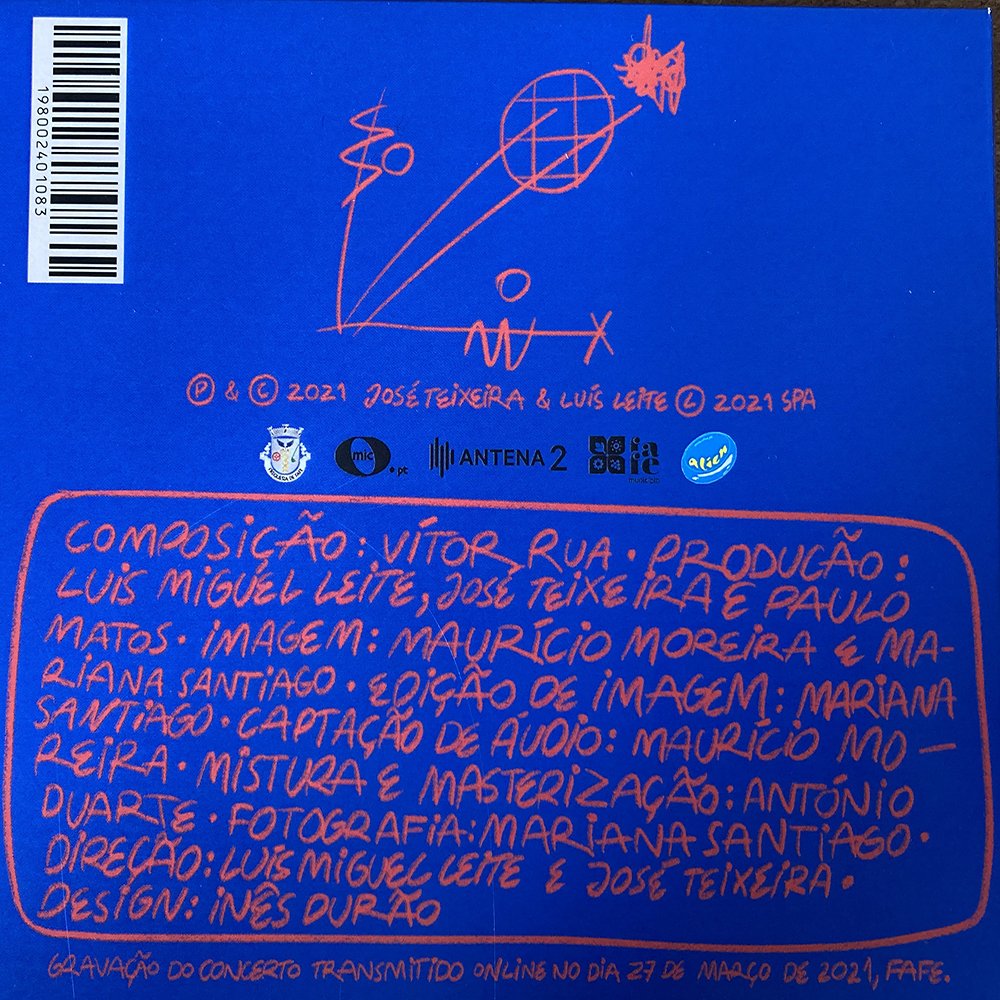 198002401083
Ⓟ & Ⓒ 2021 JOSÉ TEIXEIRA & LUÍS LEITE Ⓛ 2021 SPA
mic.pt
ANTENA 2
fafe
município
alien
COMPOSIÇÃO: VÍTOR RUA • PRODUCÃO:
LUIS MIGUEL LEITE, JOSÉ TEIXEIRA E PAULO
MATOS • IMAGEM: MAURÍCIO MOREIRA E MA-
RIANA SANTIAGO • EDIÇÃO DE IMAGEM: MARIANA
SANTIAGO • CAPTAÇÃO DE ÁUDIO: MAURÍCIO MO-
REIRA • MISTURA E MASTERIZAÇÃO: ANTÓNIO
DUARTE • FOTOGRAFIA: MARIANA SANTIAGO •
DIREÇÃO: LUIS MIGUEL LEITE E JOSÉ TEIXEIRA •
DESIGN: INÊS DURÃO
GRAVAÇÃO DO CONCERTO TRANSMITIDO ONLINE NO DIA 27 DE MARÇO DE 2021, FAFE.